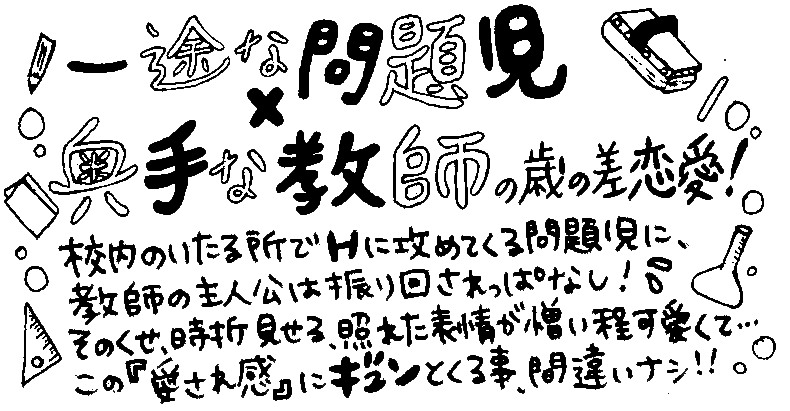 一途な問題児
×
奥手な教師の歳の差恋愛!
校内のいたる所でHに攻めてくる問題児に、
教師の主人公は振り回されっぱなし!
そのくせ、時折見せる、照れた表情が憎い程可愛くて…
この『愛され感』にギュンとくる事、間違いナシ!!